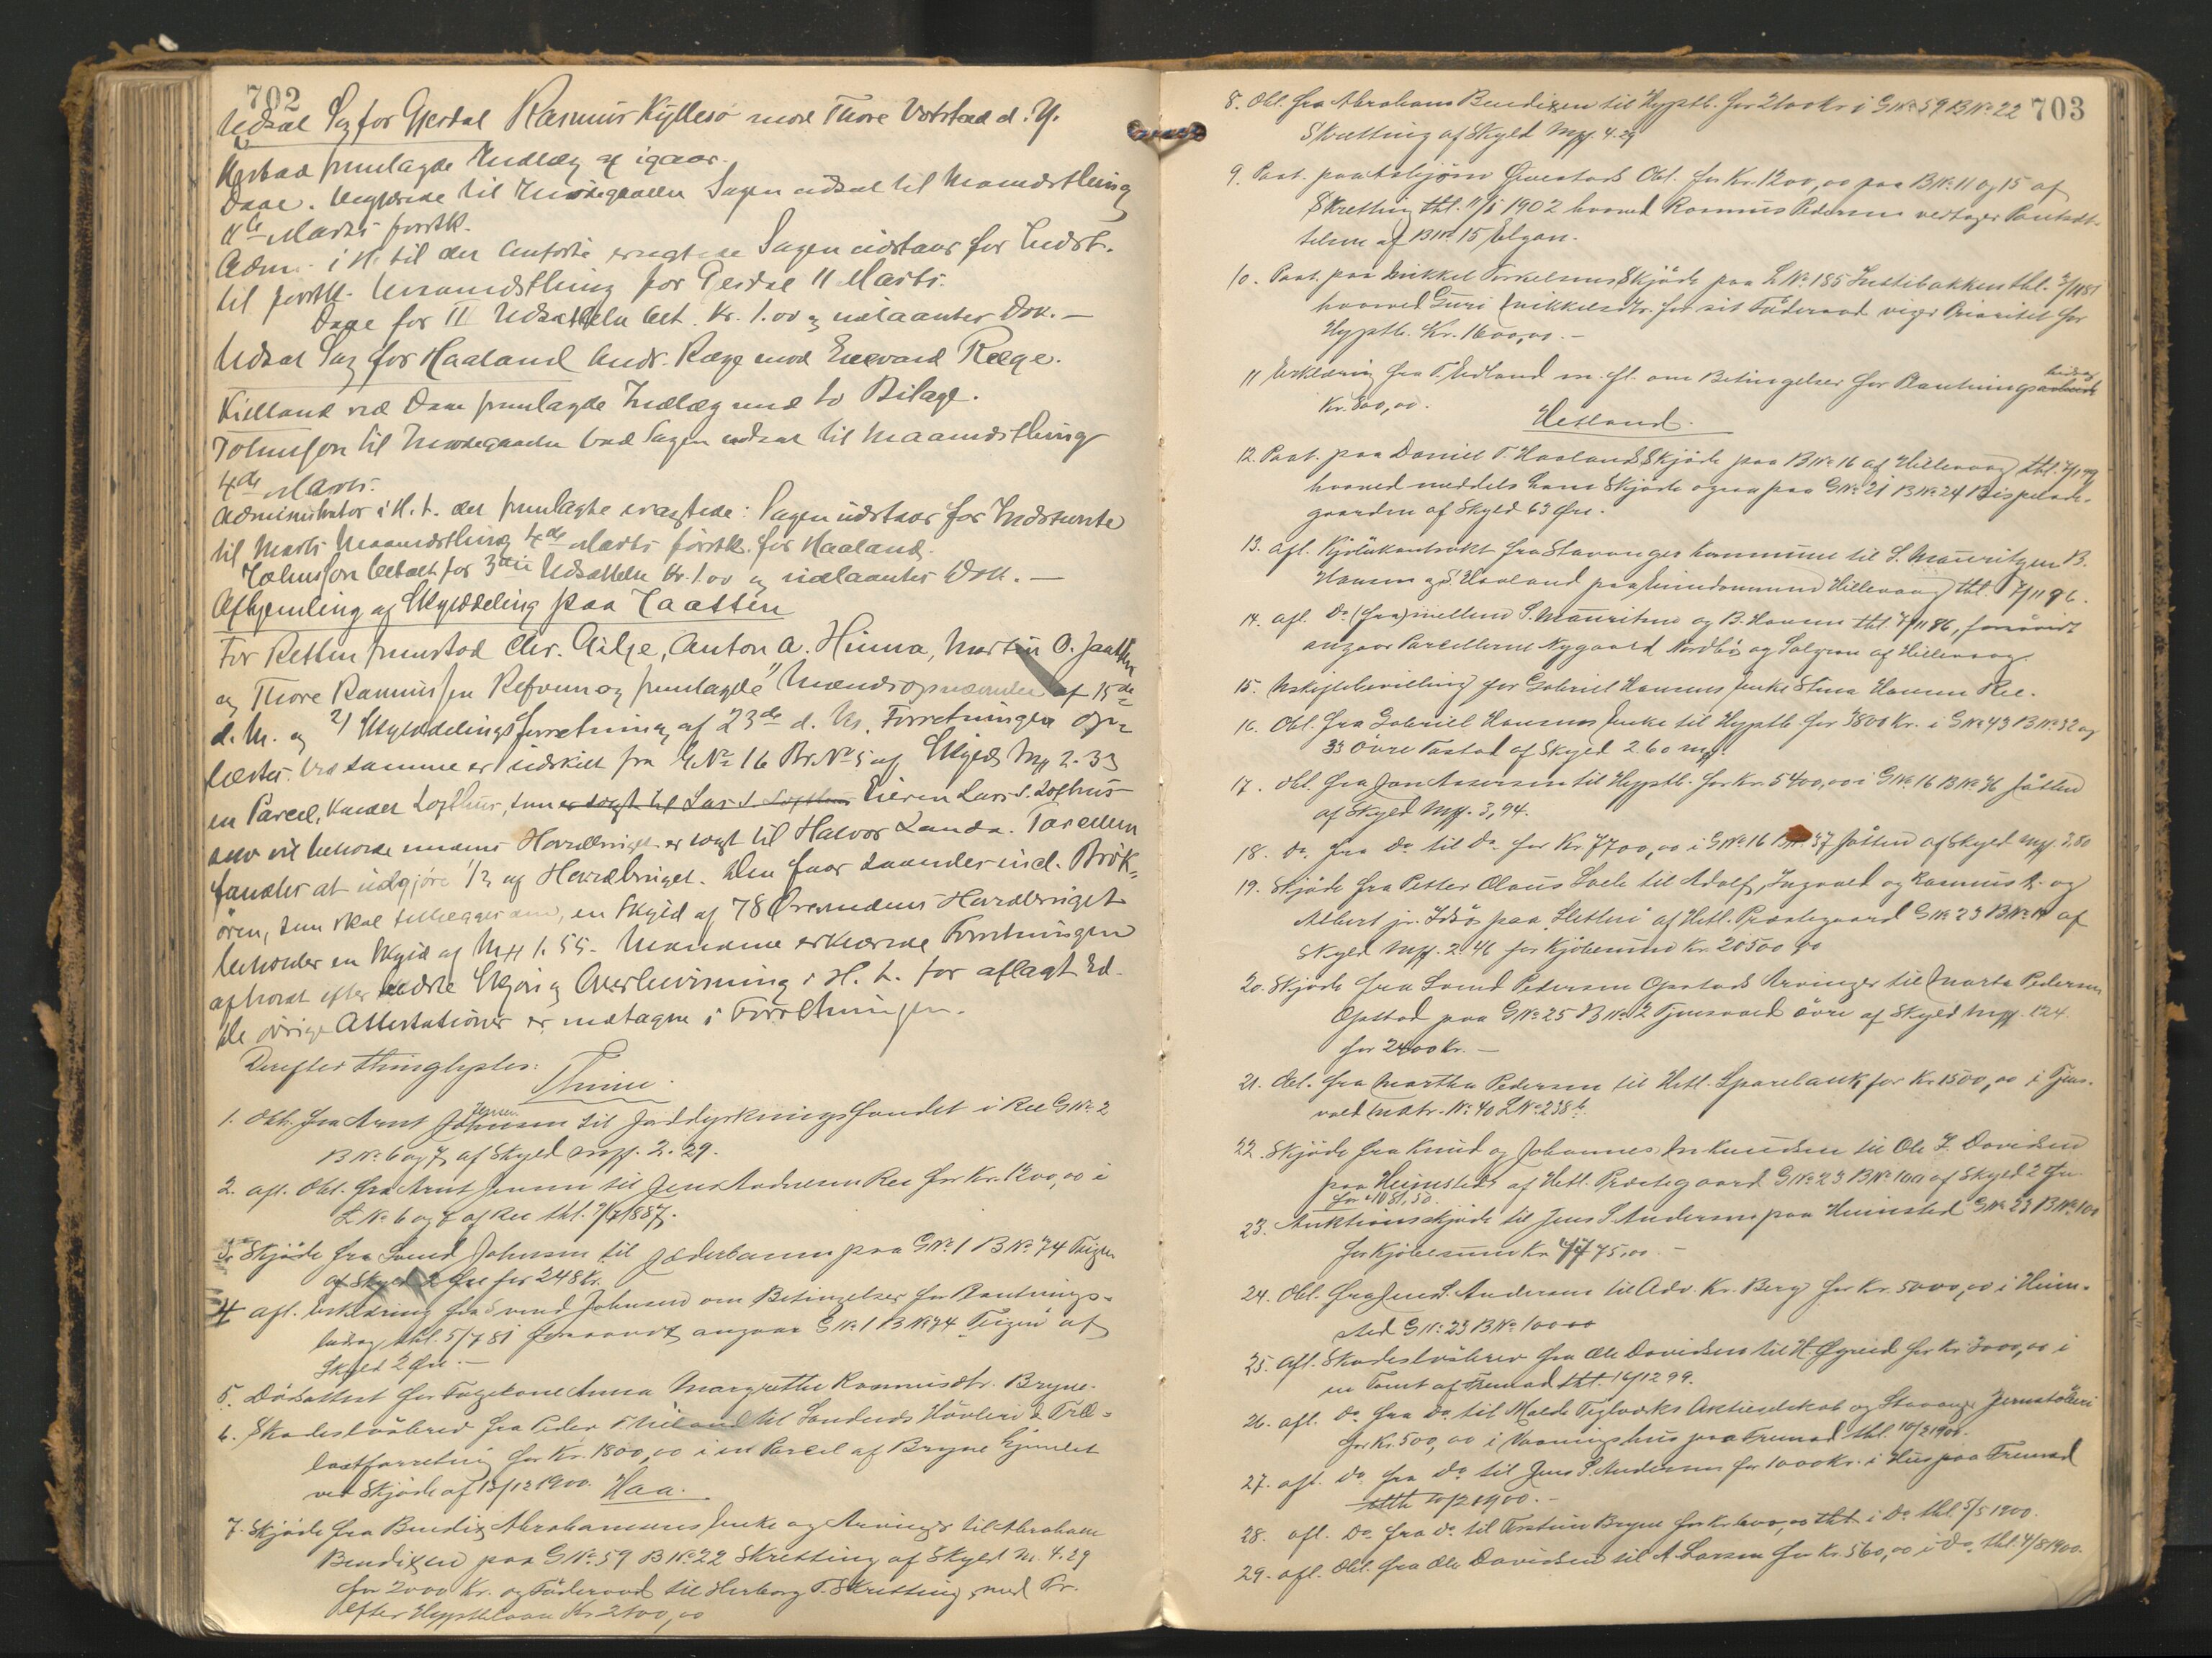 702
Udsat Sag for Gjesdal Rasmus Kyllesø mod Thore Votstad d. Y.
fremlagde Indlæg af igaar.
Daae. til Imødegaaelse Sagen udsat til Maanedsthing
11te Marts førstk.
Adm. i H. til det anførte eragtede Sagen udstaar for Indst.
til førstk. Maanedsthing for Gjesdal 11 Marts.
Daae for II Udsættelse bet. Kr. 1.00 og udlaantes Dok. —
Udsat Sag for Haaland Andr. Ræge mod Enevald Ræge.
Kielland ved Daae fremlagde Indlæg med to Bilage.
Tolmsfon til Imødegaaelse bad Sagen udsat til Maanedsthing
4de Marts.
Administrator i H. t. det fremlagte eragtede: Sagen udstaar for Indstevnte
til Marts Maanedsthing 4de Marts førstk. for Haaland.
betalt for 3die Udsættelse Kr. 1.00 og udlaantes Dok. —
Afhjemling af Skylddeling paa Jaatten
For Retten fremstod Chr. Gilje, Anton A. Hinna, Martin O. Jaatten
og Thore Rasmussen Refvem og fremlagde 1) Mændsopnævnelse af 15de
d. M. og 2) Skylddelingsforretning af 23de d. M. Forretningen op-
læstes. Ved samme er udskilt fra G.No 16 Br.No 5 af Skyld M 2.33
en Parcel, kaldet Lofthus, som er solgt til Lars S. Lofthus Eieren Lars S. Lofthus
selv vil beholde medens Hovedbruget er solgt til Halvor Landa. Parcellen
fandtes at udgjøre 1/3 af Hovedbruget. Den faar saaledes incl. Brøk-
øren, som skal tillægges den, en Skyld af 78 Øre medens Hovedbruget
beholder en Skyld af M 1.55. Mændene erklærede Forretningen
afholdt efter bedste Skjøn og Overbevisning i H. t. før aflagt Ed.
De øvrige Attestationer er medtagne i Forretningen.
Derefter thinglystes:
Thime.
1. Obl. fra Arnt Johnsen Jensen til Jorddyrkningsfondet i Ree GNo 2
BNo 6 og 7 af Skyld M. 2.29.
2. afl. Obl. fra Arnt Jensen til Jens Andresen Ree for Kr. 1200,00 i
LNo 6 og 7 af Ree thl. 7/7 1887.
3. Skjøde fra Svend Johnsen til Jæderbanen paa GNo 1 BNo 74 Teigen
af Skyld 2 Øre for 248 Kr.
4 afl. Erklæring fra Svend Johnsen om Betingelser for Plantnings-
bidrag thl. 5/7 81 forsaavidt angaar GNo 1 BNo 74 Teigen af
Skyld 2 Øre. —
5. Dødsattest for Pigekone Anna Margrethe Rasmusdtr. Bryne.
6. Skadesløsbrev fra Peder T. Mæland til Sandnes Høvleri & Træ-
lastforretning for Kr. 1800,00 i en Parcel af Bryne hjemlet
ved Skjøde af 13/12 1900.
Haa.
7. Skjøde fra Bendix Abrahamsens Enke og Arvinger til Abraham
Bendixen paa GNo 59 BNo 22 Skretting af Skyld M. 4.29
for 2000 Kr. og Føderaad til Herborg T. Skretting, med Pr.
efter Hypthlaan Kr. 2100,00
703
8. Obl. fra Abraham Bendixen til Hyptb. for 2100 Kr i GNo 59 BNo 22
Skretting af Skyld M. 4.29
9. Paat. paa Asbjørn Qvestads Obl. for Kr. 1200,00 paa BNo 11 og 15 af
Skretting thl. 11/5 1902 hvorved Rasmus Pedersen vedtager Pantsæt-
telsen af BNo 15 Elgan.
10. Paat. paa Mikkel Torkelsens Skjøde paa LNo 185 thl. 2/11 81
hvorved Guri Mikkelsdtr. for sit Føderaad viger Prioritet for
Hyptb. Kr. 1600,00. —
11 Erklæring fra T. Edland m. fl. om Betingelser for Plantningsarbeide bidrag
Kr. 800,00.
Hetland.
12. Paat. paa Daniel T. Haalands Skjøde paa BNo 16 af Hillevaag thl. 7/1 99
hvorved meddeles ham Skjøde ogsaa paa GNo 21 BNo 24 Bispelade-
gaarden af Skyld 63 Øre.
13. afl. Kjøbekontrakt fra Stavanger Kommune til S. Mauritzen B.
Hansen og S. Haaland paa Eiendommen Hillevaag thl. 7/11 96.
14. afl. Do (fra) mellem S. Mauritzen og B. Hansen thl. 7/11 86, forsåvidt
angaar Parcellerne Nygaard Nordbø og Solgren af Hillevaag.
15. Uskiftebevilling for Gabriel Hansens Enke Stina Hansen Ree.
16. Obl. fra Gabriel Hansens Enke til Hyptb. for 3800 Kr. i GNo 43 BNo 32 og
33 øvre Tastad af Skyld 2.60 M.
17. Obl. fra Jon Assersen til Hyptb. for Kr. 5400,00 i GNo 16 BNo 36 Jåtten
af Skyld M. 3,94.
18. Do fra Do til Do for Kr. 7700,00 i GNo 16 BNo 37 Jåtten af Skyld M. 3,80
19. Skjøde fra Petter Olaus Svele til Adolf, Ingvald og Rasmus R. og
Albert jr. Idsø paa "Sletten" af Hetl. Præstegaard GNo 23 BNo 14 af
Skyld M. 2.46 for Kjøbesum Kr. 20500,00
20. Skjøde fra Svend Pedersen Opstads Arvinger til Marta Pedersen
Opstad paa GNo 25 BNo 2 Tjensvold øvre af Skyld M. 1.24.
for 2400 Kr. —
21. Obl. fra Martha Pedersen til Hetl. Sparebank for Kr. 1500,00 i Tjens-
vold Matr. No 40 LNo 238 b.
22. Skjøde fra Knud og Johannes Knudsen til Ole I. Davidsen
paa Heimsted af Hetl. Præstegaard GNo 23 BNo 100 af Skyld 2 Øre
for 1081,50.
23. Auktionsskjøde til Jens S. Andersen paa Heimsted GNo 23 BNo 100
for Kjøbesum Kr. 4775,00. —
24. Obl. fra Jens S. Andersen til Adv. Kr. Berg for Kr. 5000,00 i Heim-
sted GNo 23 BNo 100
25. afl. Skadesløsbrev fra Ole Davidsen til H. Øgreid for Kr. 3000,00 i
en Tomt af Fremad thl. 16/12 99.
26. afl. Do fra Do til Malde Teglværks Aktieselskab og Stavanger Jernstøberi
for Kr. 500,00 i Vaaningshus paa Fremad thl. 10/2 1900.
27. afl. Do fra Do til Jens S. Andersen for 1000 Kr. i Hus paa Fremad
thl 10/2 1900. —
28. afl. Do fra Do til Torstein Bryne for Kr. 600,00 thl i Do thl. 5/5 1900.
29. afl. Obl. fra Ole Davidsen til A. Larsen for Kr. 560,00 i Do thl. 4/8 1900.